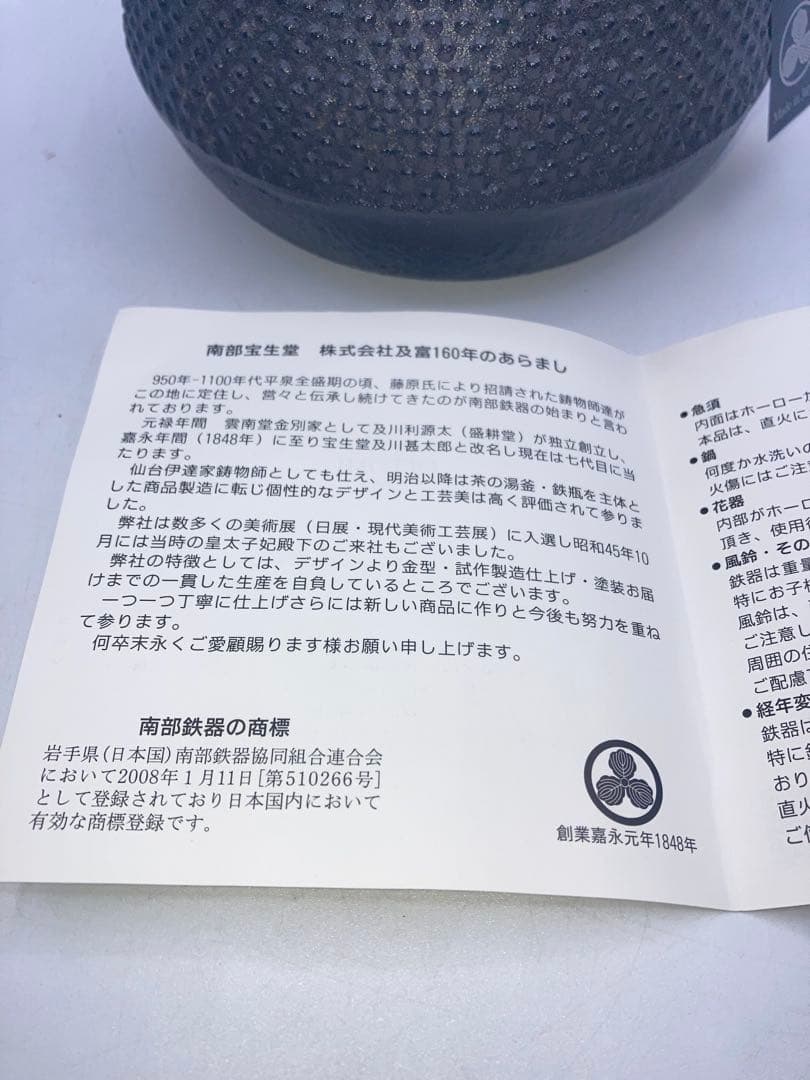 南部宝生堂　株式会社及富160年のあらまし
950年-1100年代平泉全盛期の頃、藤原氏により招請された鋳物師達が
この地に定住し、営々と伝承し続けてきたのが南部鉄器の始まりと言わ
れております。
元禄年間　雲南堂金別家として及川利源太（盛耕堂）が独立創立し、
嘉永年間（1848年）に至り宝生堂及川甚太郎と改名し現在は七代目に当
たります。
仙台伊達家鋳物師としても仕え、明治以降は茶の湯釜・鉄瓶を主体と
した商品製造に転じ個性的なデザインと工芸美は高く評価されて参りま
した。
弊社は数多くの美術展（日展・現代美術工芸展）に入選し昭和45年10
月には当時の皇太子妃殿下のご来社もございました。
弊社の特徴としては、デザインより金型・試作製造仕上げ・塗装お届
けまでの一貫した生産を自負しているところでございます。
一つ一つ丁寧に仕上げさらには新しい商品に作りと今後も努力を重ね
て参ります。
何卒末永くご愛顧賜ります様お願い申し上げます。
南部鉄器の商標
岩手県（日本国）南部鉄器協同組合連合会
において2008年1月11日［第510266号］
として登録されており日本国内において
有効な商標登録です。
創業嘉永元年1848年
●急須
内面はホーロー
本品は、直火に
●鍋
何度か水洗いの
火傷にはご注
●花器
内部がホーロ
頂き、使用
●風鈴・その
鉄器は重量
特にお子様
風鈴は、
ご注意し
周囲の住
ご配慮
●経年変
鉄器は
特に
おり
直火
ご使
Made in